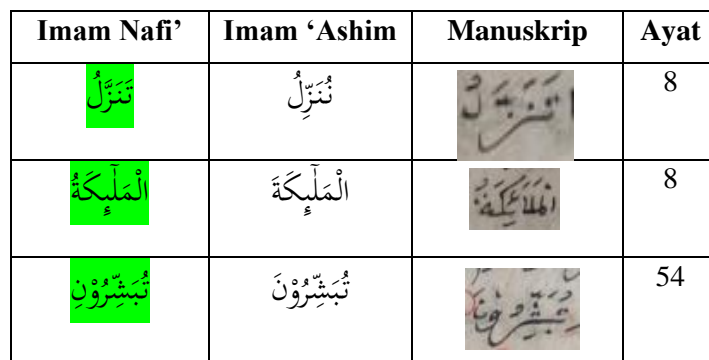 Imam Nafi’ Imam ‘Ashim Manuskrip Ayat
تَنَزَّلُ نُنَزِّلُ تَنَزَّلُ 8
الْمَلٰٓىِٕكَةُ الْمَلٰٓىِٕكَةَ 8
تُبَشِّرُوْنِ تُبَشِّرُوْنَ 54